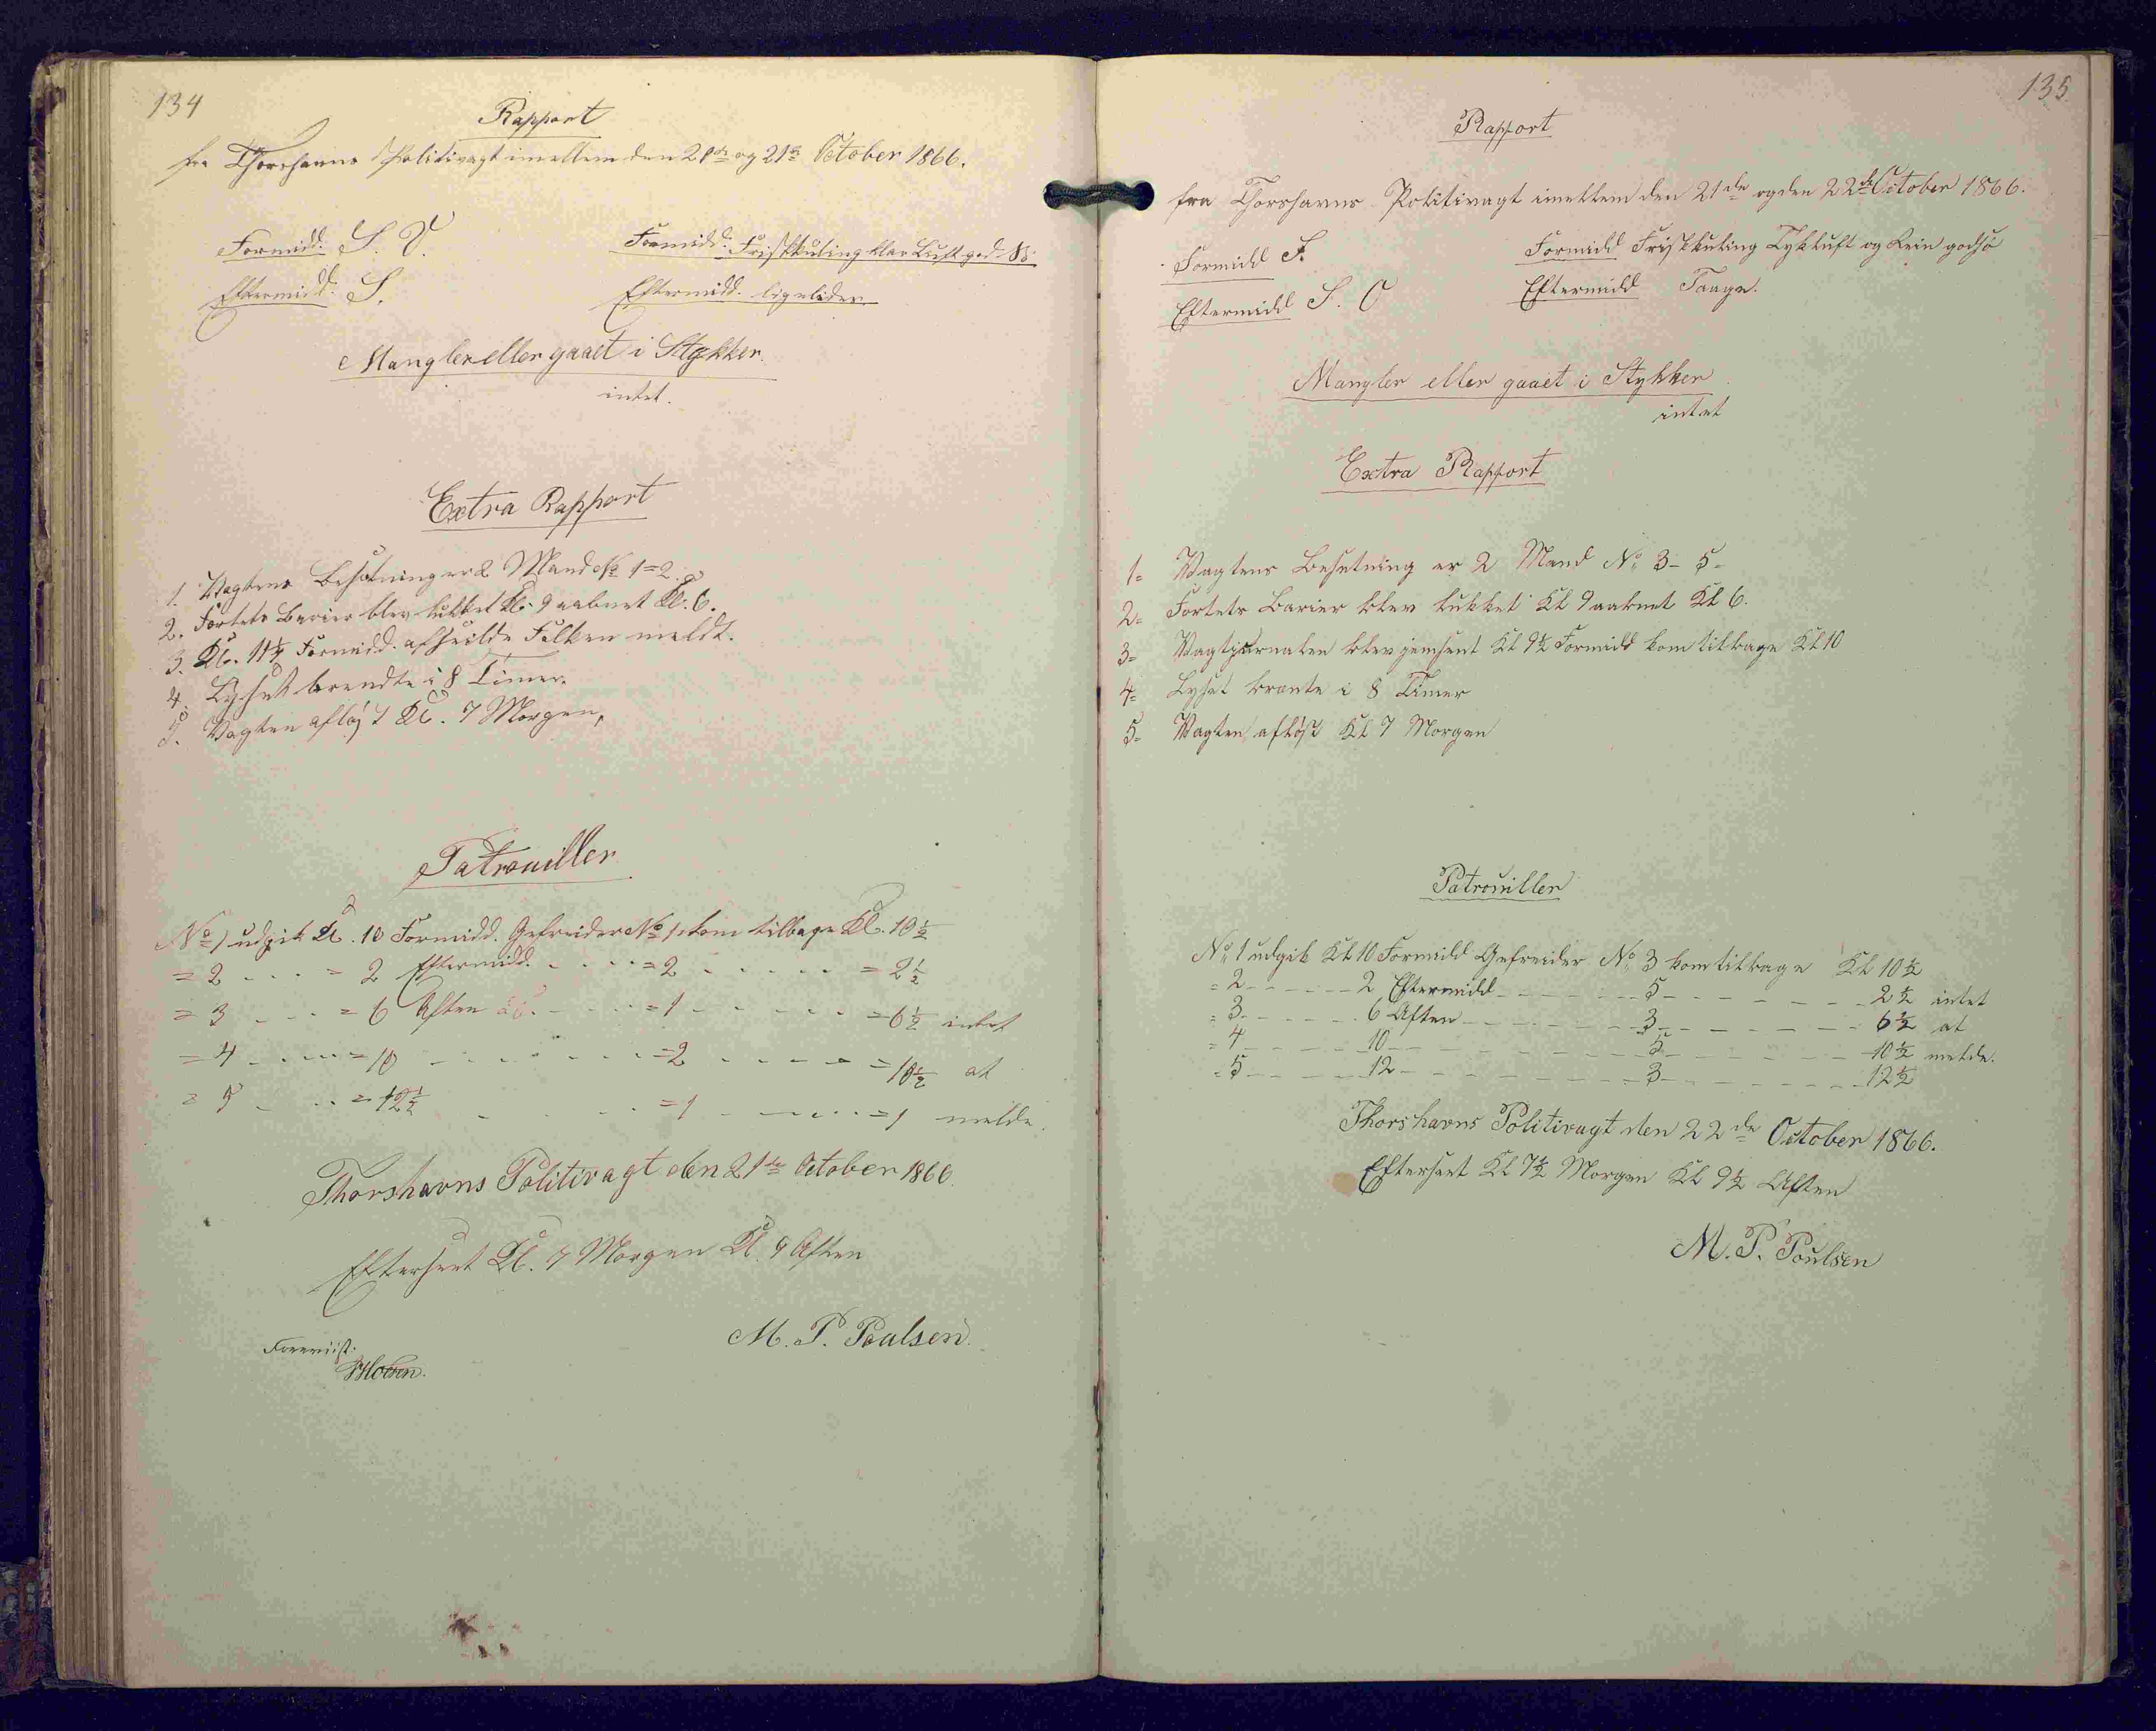 134
Rapport
fra Thorshavns Politivagt imellem den 20de og 21de October 1866.
Formidd: S. V. Formidd: Frisk Kuling klar Luft god Sö.
Eftermidd: S. Eftermidd. ligeledes
Mangler eller gaaet i Stykker.
intet.
Extra Rapport
1. Vagtens Besætning er 2 Mand No 1 = 2.
2. Fortets Barier blev lukket Kl. 9 aabnet Kl. 6.
3. Kl. 11½ Formidd. afseilde Falken meldt.
4. Lyset brendte i 8 Timer.
5. Vagten afløst Kl. 7 Morgen,
Patrouiller
No 1 udgik Kl. 10 Formidd. Gefreider No 1 kom tilbage Kl. 10½
= 2 - - - = 2 Eftermidd. - - - = 2 - - - - - = 2½
= 3 - - - = 6 Aften - - - = 1 - - - - - = 6½ intet
= 4 - - - = 10 - - - - - = 2 - - - - - = 10½ at
= 5 - - - = 12½ - - - - - = 1 - - - - - = 1 melde.
Thorshavns Politivagt den 21de October 1866.
Efterseet Kl. 7 Morgen Kl. 9 Aften
M. P. Poulsen.
Foreviist:
135
Rapport
fra Thorshavns Politivagt imellem den 21de og den 22de October 1866.
Formidd S. Formidd Frisk Kuling Tyk Luft og Rein god Sö
Eftermidd S. O Eftermidd Taage.
Mangler eller gaaet i Stykker
intet
Extra Rapport
1= Vagtens Besetning er 2 Mand No 3 - 5 -
2= Fortets Barier blev lukket Kl 9 aabnet Kl 6.
3= Vagtjurnalen blev jemsent Kl 9½ Formidd kom tilbage Kl 10
4= Lyset brænte i 8 Timer
5= Vagten afløst Kl 7 Morgen
Patrouiller
No 1 udgik Kl 10 Formidd Gefreider No 3 kom tilbage Kl 10½
= 2 - - - - - 2 Eftermidd - - - - - 5 - - - - - 2½ intet
= 3 - - - - - 6 Aften - - - - - 3 - - - - - 6½ at
= 4 - - - - - 10 - - - - - 5 - - - - - 10½ melde.
= 5 - - - - - 12 - - - - - 3 - - - - - 12½
Thorshavns Politivagt den 22de October 1866.
Efterseet Kl 7½ Morgen Kl 9½ Aften
M. P. Poulsen